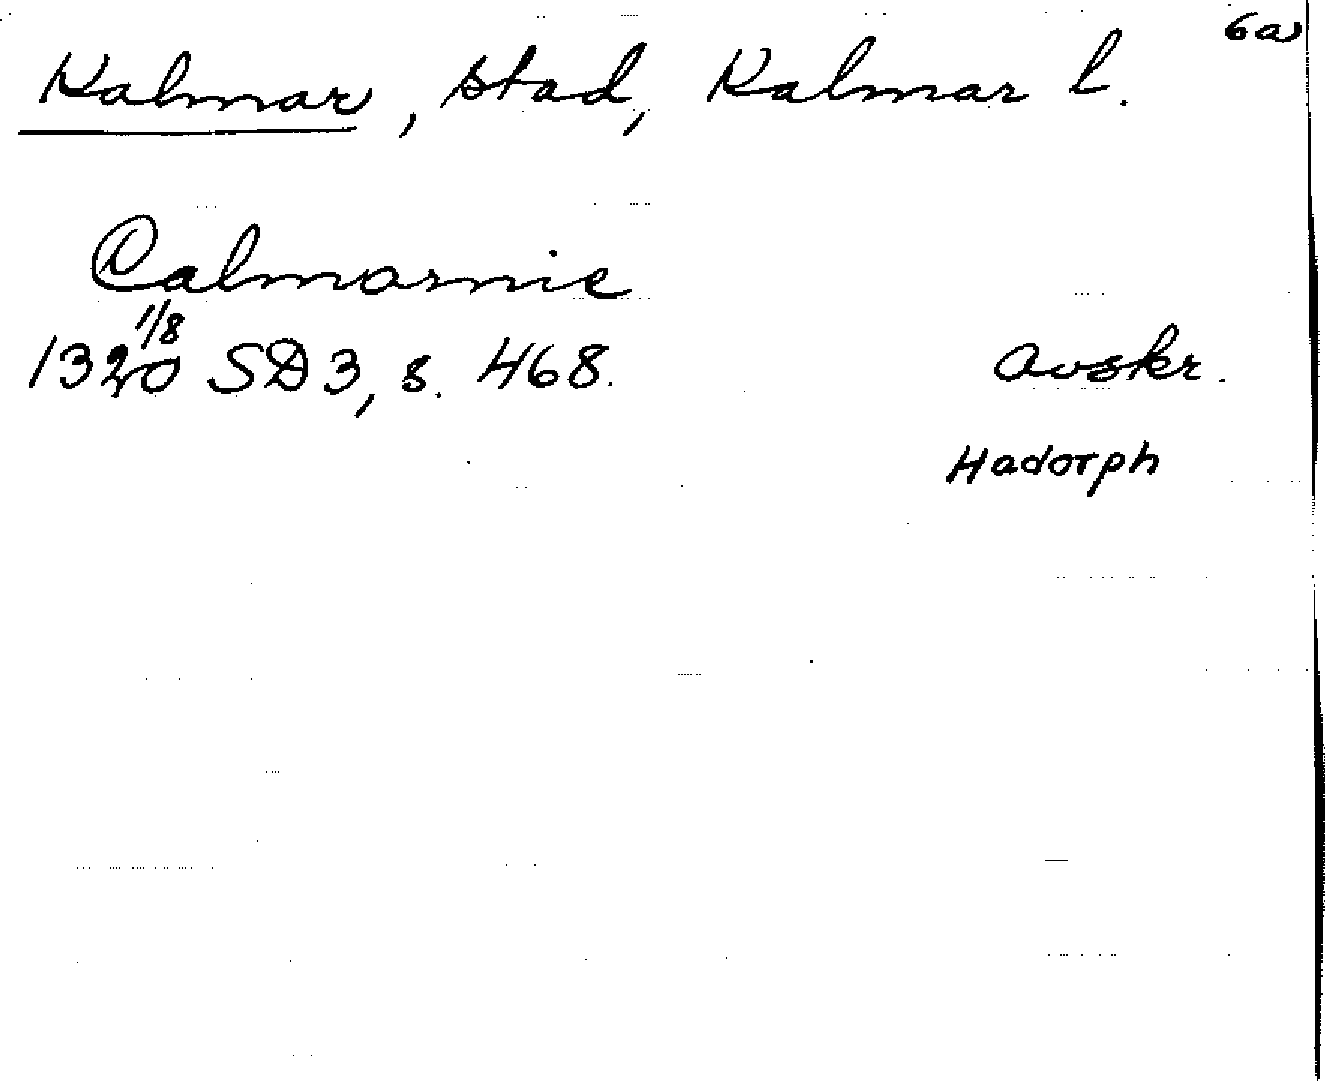 6a
Kalmar, stad, Kalmar l.
Calmarnie
1320 1/8 SD 3, s. 468. Avskr.
Hadorph